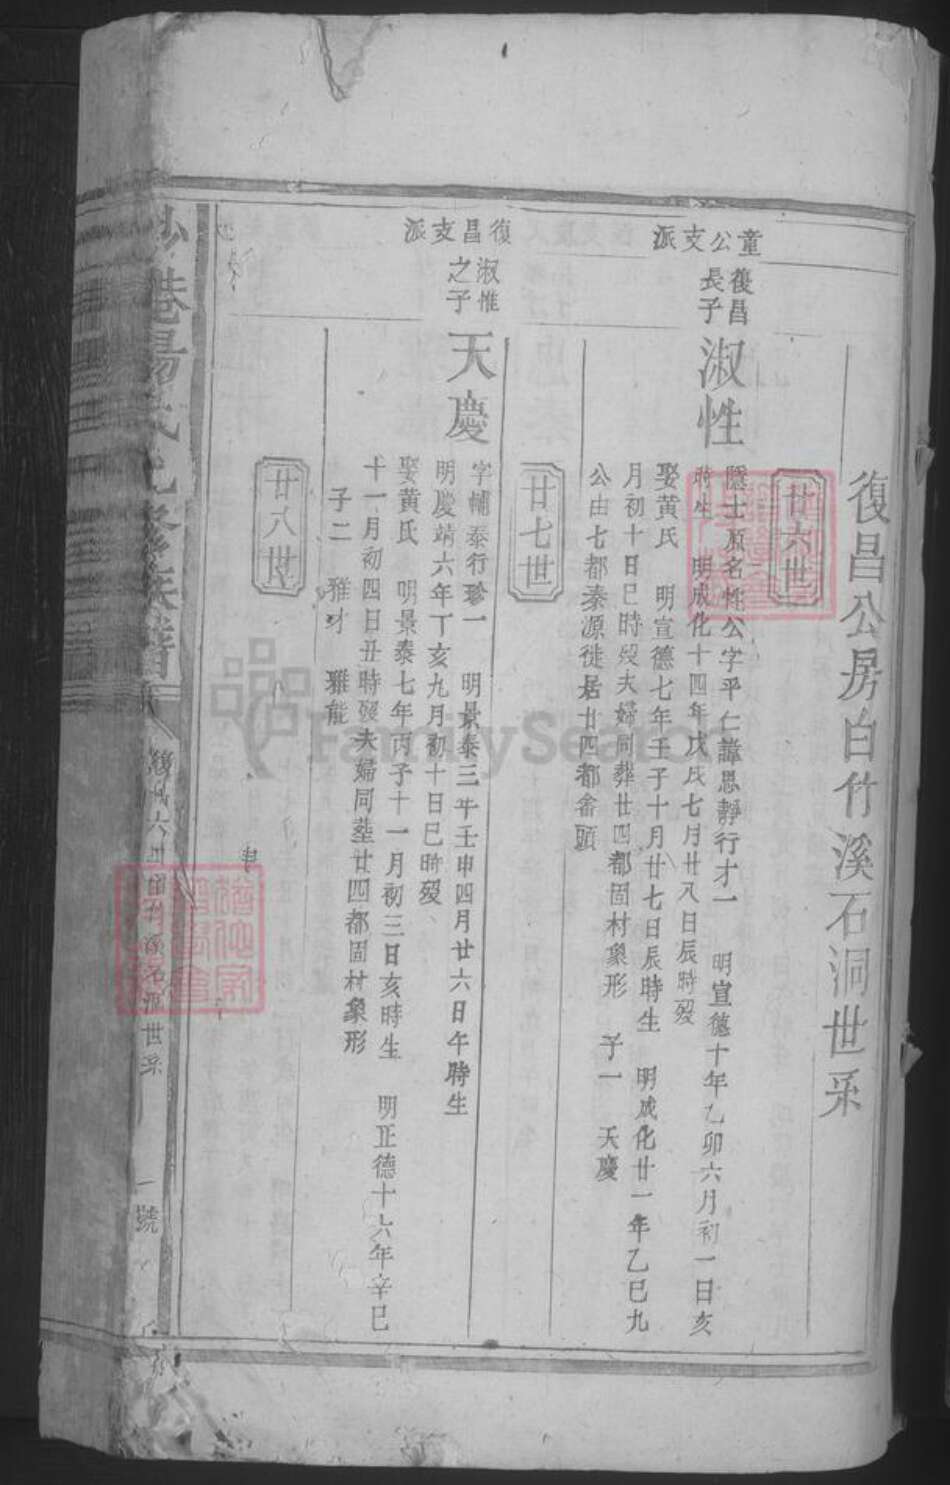 復昌公房白竹溪石洞世系
廿六世
童公支派
復昌
長子
淑性
隱士原名性公字平仁諱思靜行才一 明宣德十年乙卯六月初一日亥
時生 明成化十四年戊戌七月廿八日辰時歿
娶黃氏 明宣德七年壬子十月廿七日辰時生 明成化廿一年乙巳九
月初十日巳時歿夫婦同葬廿四都固村象形 子一 天慶
公由七都秦源徙居廿四都畲頭
廿七世
復昌支派
淑惟
之子
天慶
字輔泰行珍一 明景泰三年壬申四月廿六日午時生
明慶靖六年丁亥九月初十日巳時歿
娶黃氏 明景泰七年丙子十一月初三日亥時生 明正德十六年辛巳
十一月初四日丑時歿夫婦同塟廿四都固村象形
子二 雅才 雅能
廿八世
楊氏 族譜
復廿六世 石洞世系
一號
FamilySearch